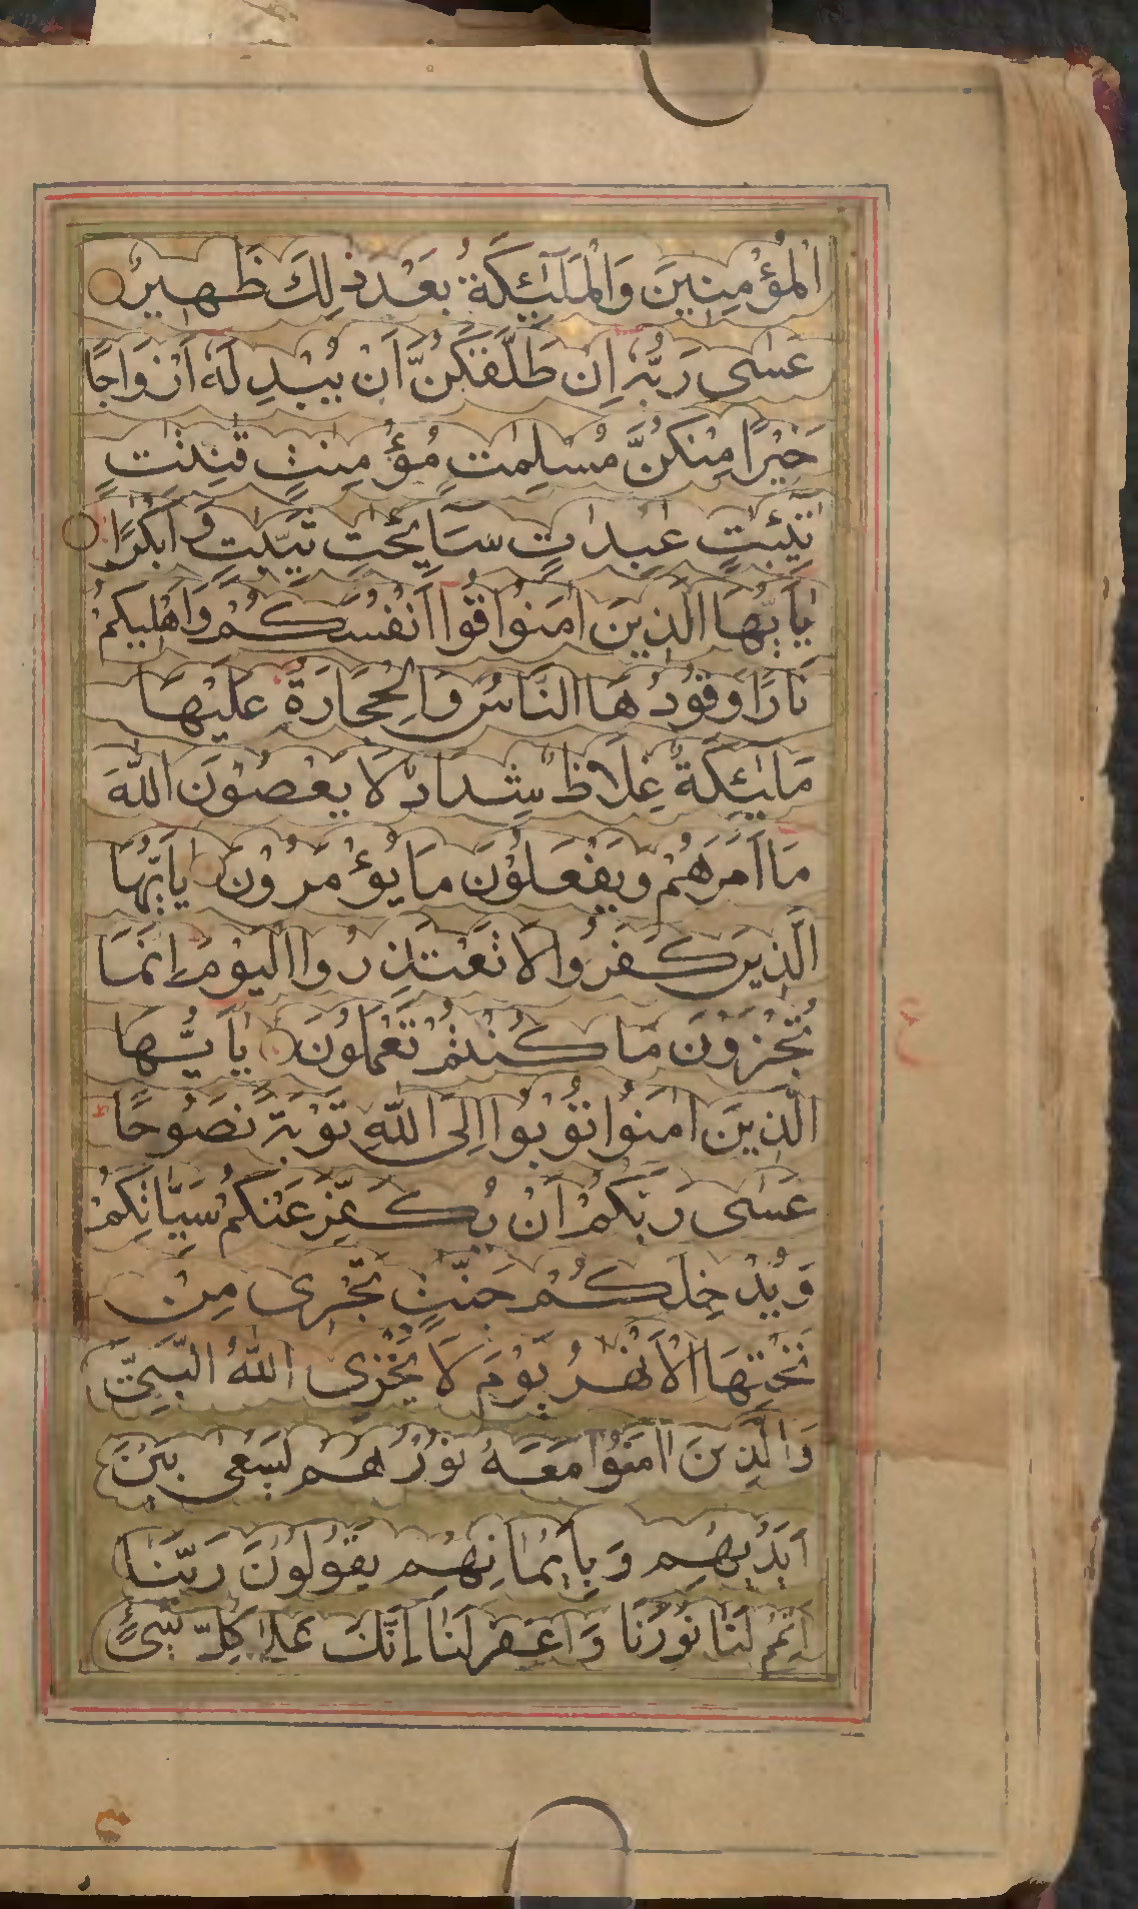 الْمُؤْمِنِينَ وَالْمَلٰٓئِكَةُ بَعْدَ ذٰلِكَ ظَهِيرٌ
عَسٰى رَبُّهٗ اِنْ طَلَّقَكُنَّ اَنْ يُبْدِلَهٗ اَزْوَاجًا
خَيْرًا مِنْكُنَّ مُسْلِمٰتٍ مُؤْمِنٰتٍ قٰنِتٰتٍ
تٰٓئِبٰتٍ عٰبِدٰتٍ سَآئِحٰتٍ ثَيِّبٰتٍ وَاَبْكَرًا
يٰٓاَيُّهَا الَّذِينَ اٰمَنُوا قُوٓا اَنْفُسَكُمْ وَاَهْلِيكُمْ
نَارًا وَقُودُهَا النَّاسُ وَالْحِجَارَةُ عَلَيْهَا
مَلٰٓئِكَةٌ غِلَاظٌ شِدَادٌ لَا يَعْصُوْنَ اللّٰهَ
مَا اَمَرَهُمْ وَيَفْعَلُوْنَ مَا يُؤْمَرُوْنَ يٰاَيُّهَا
الَّذِينَ كَفَرُوا لَا تَعْتَذِرُوا الْيَوْمَ اِنَّمَا
تُجْزَوْنَ مَا كُنْتُمْ تَعْمَلُوْنَ يٰٓاَيُّهَا
الَّذِينَ اٰمَنُوا تُوْبُوْا اِلَى اللّٰهِ تَوْبَةً نَصُوْحًا
عَسٰى رَبُّكُمْ اَنْ يُكَفِّرَ عَنْكُمْ سَيِّاٰتِكُمْ
وَيُدْخِلَكُمْ جَنّٰتٍ تَجْرِى مِنْ
تَحْتِهَا الْاَنْهٰرُ يَوْمَ لَا يُخْزِى اللّٰهُ النَّبِىَّ
وَالَّذِينَ اٰمَنُوْا مَعَهُ نُوْرُهُمْ يَسْعٰى بَيْنَ
اَيْدِيْهِمْ وَبِاَيْمَانِهِمْ يَقُوْلُوْنَ رَبَّنَا
اَتْمِمْ لَنَا نُوْرَنَا وَاغْفِرْ لَنَا اِنَّكَ عَلٰا كُلِّ شَىْءٍ
ع